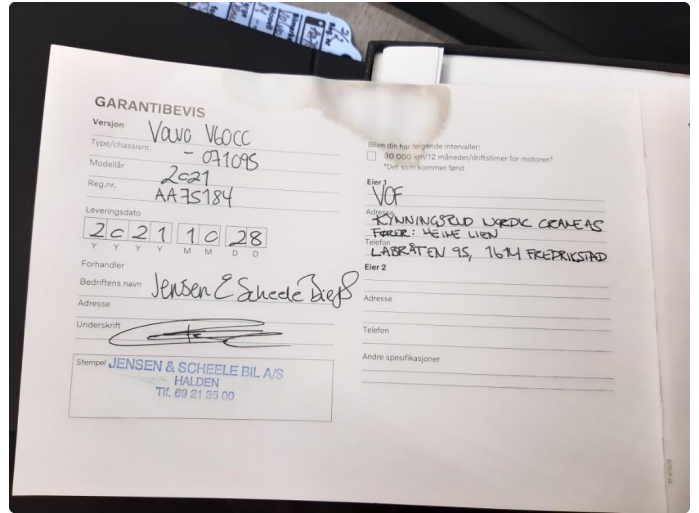 GARANTIBEVIS
Versjon Volvo V60CC
Type/chassisnr. - 071095
Modellår 2021
Reg.nr. AA75184
Leveringsdato
2021 10 28
Y Y Y Y M M D D
Forhandler
Bedriftens navn Jensen & Scheele Bil
Adresse
Underskrift
Stempel JENSEN & SCHEELE BIL A/S
HALDEN
Tlf. 69 21 35 00
Bilen din har følgende intervaller:
30 000 km/12 måneder/driftstimer for motoren*
*Det som kommer først
Eier 1
VCF
Adresse KYNNINGSRUD NORDIC CRANE AS
FØRER: HEINE LIEN
Telefon
LABRÅTEN 95, 1614 FREDRIKSTAD
Eier 2
Adresse
Telefon
Andre spesifikasjoner